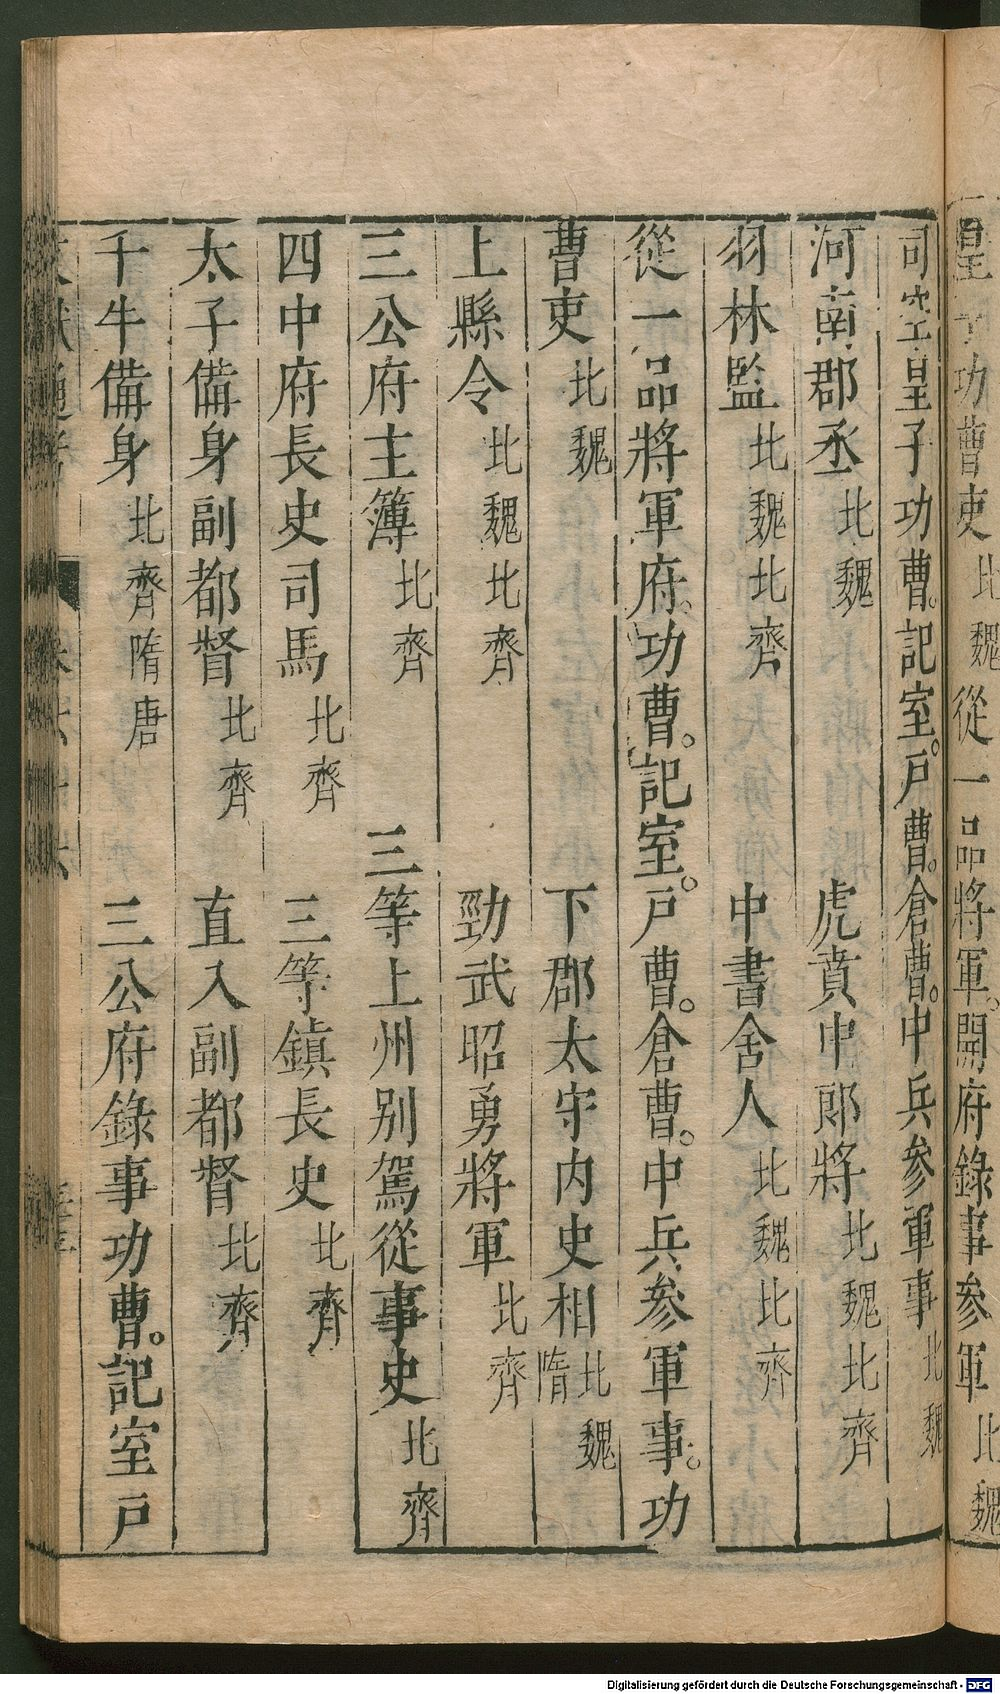 皇子功曹吏北魏從一品將軍。開府錄事參軍北魏
司空皇子功曹。記室。戸曹。倉曹。中兵參軍事北魏
河南郡丞北魏 虎賁中郎將北魏北齊
羽林監北魏北齊 中書舍人北魏北齊
從一品將軍府。功曹。記室。戸曹。倉曹。中兵參軍事。功
曹吏北魏 下郡太守内史相北魏隋
上縣令北魏北齊 勁武昭勇將軍北齊
三公府主簿北齊 三等上州别駕從事史北齊
四中府長史司馬北齊 三等鎮長史北齊
太子備身副都督北齊 直入副都督北齊
千牛備身北齊隋唐 三公府錄事功曹。記室戸
Digitalisierung gefördert durch die Deutsche Forschungsgemeinschaft - DFG